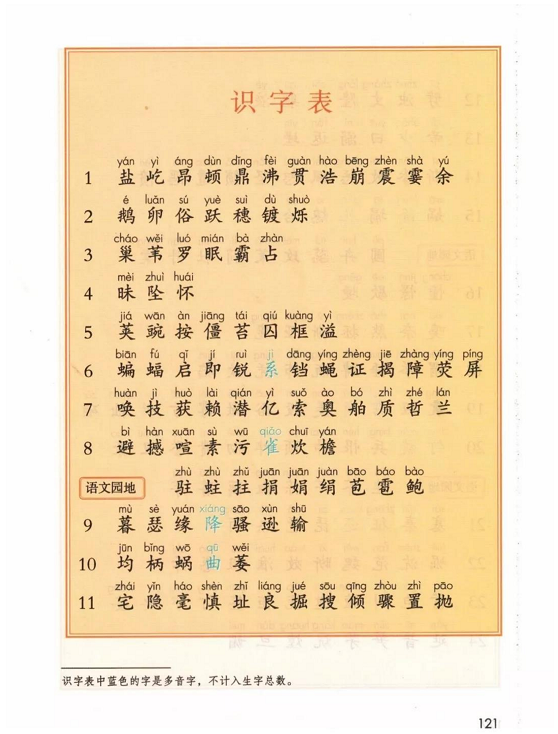 识字表
yán yì áng dùn dǐng fèi guàn hào bēng zhèn shà yú
1 盐 屹 昂 顿 鼎 沸 贯 浩 崩 震 霎 余
é luǎn sú yuè suì dù shuò
2 鹅 卵 俗 跃 穗 镀 烁
cháo wěi luó mián bà zhàn
3 巢 苇 罗 眠 霸 占
mèi zhuì huái
4 昧 坠 怀
yīng wān àn jiāng tái qiú kuàng yì
5 英 豌 按 僵 苔 囚 框 溢
biān fú qǐ jí ruì jì dāng yíng zhèng jiē zhàng yíng píng
6 蝙 蝠 启 即 锐 系 铛 蝇 证 揭 障 荧 屏
huàn jì huò lài qián yì suǒ ào bó zhì zhé lán
7 唤 技 获 赖 潜 亿 索 奥 舶 质 哲 兰
bì hàn xuān sù wū qiǎo chuī yán
8 避 撼 喧 素 污 雀 炊 檐
zhù zhù zhǔ juān juān juàn bāo báo bào
语文园地 驻 蛀 拄 捐 娟 绢 苞 雹 鲍
mù sè yuán xiáng sāo xùn shū
9 暮 瑟 缘 降 骚 逊 输
jūn bǐng wō qū wěi
10 均 柄 蜗 曲 萎
zhái yǐn háo shèn zhǐ liáng jué sōu qīng zhòu zhì pāo
11 宅 隐 毫 慎 址 良 掘 搜 倾 骤 置 抛
识字表中蓝色的字是多音字，不计入生字总数。
121